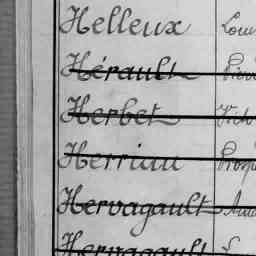 Helleux
Hérault
Herbet
Herriau
Hervagault
Hervagault